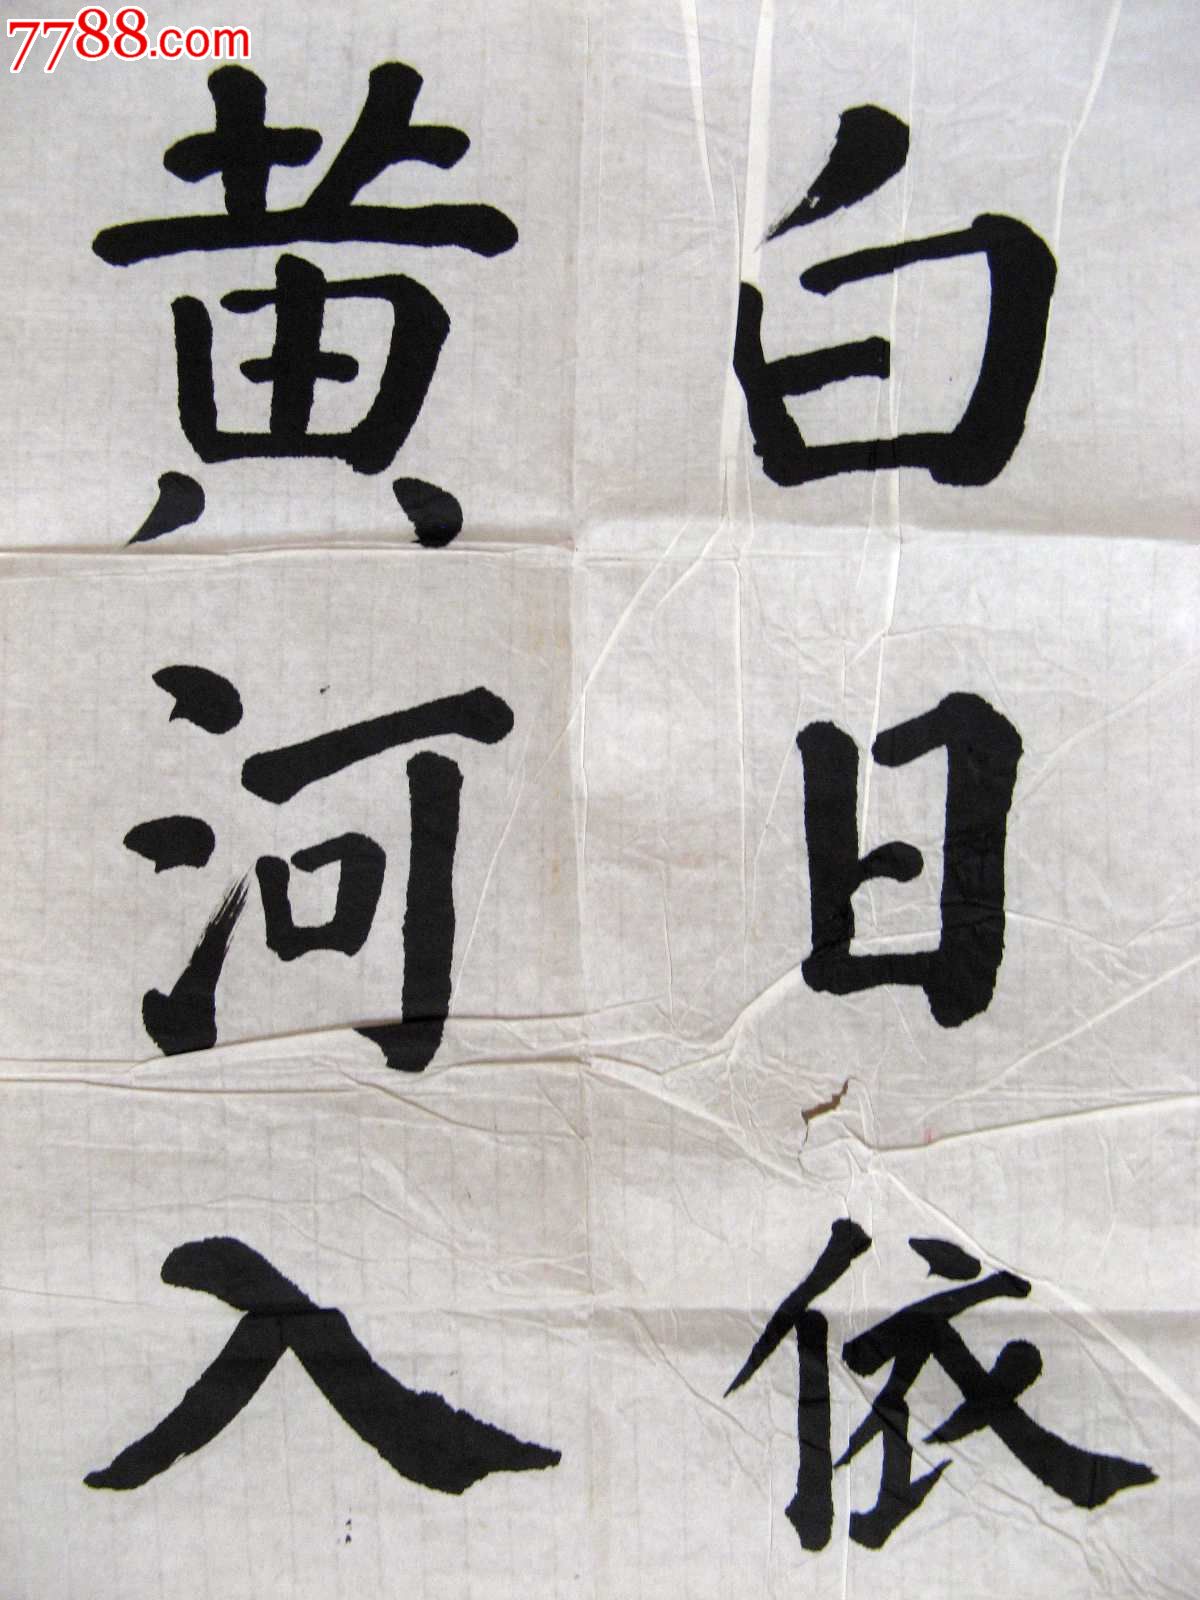 7788.com
白日依
黄河入